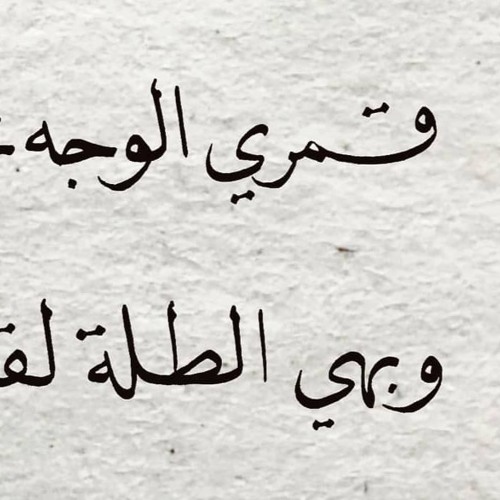 قمري الوجه
وبهي الطلة